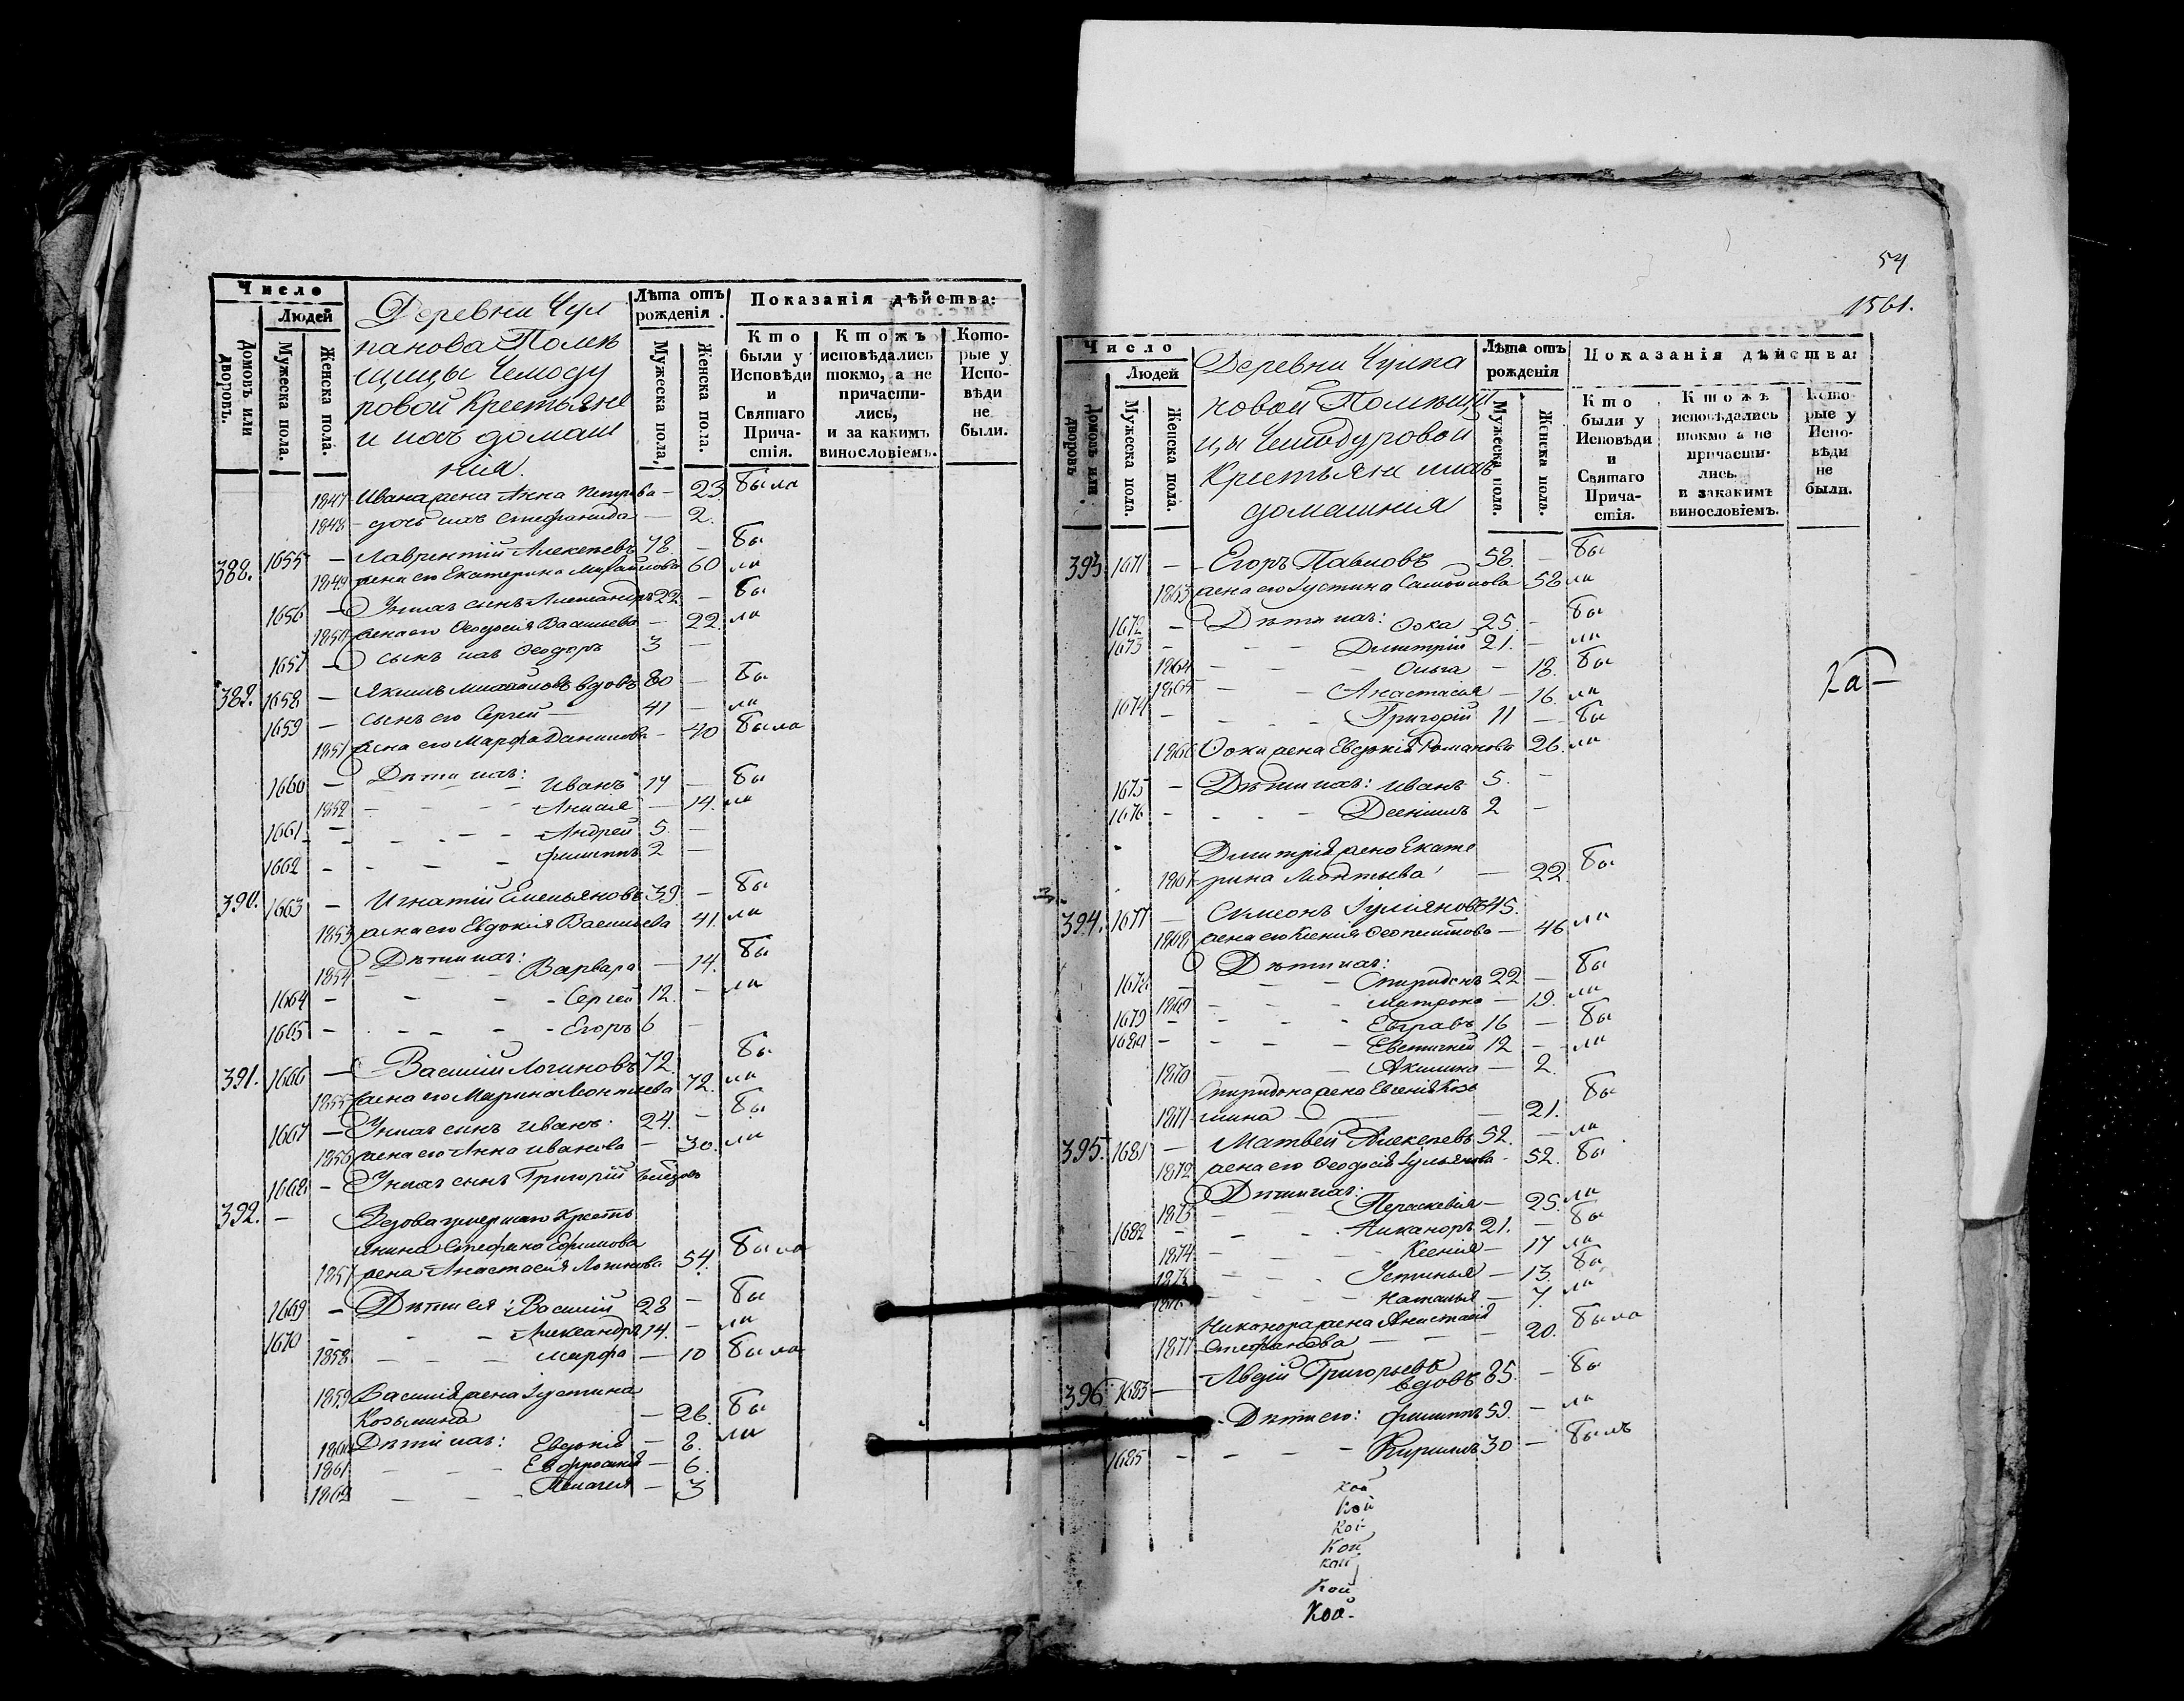 Число
Людей
Домовъ или дворовъ.
Мужеска пола.
Женска пола.
Деревни Чул
панова Помѣ
щицы Чемоду
ровой Крестьяне
и ихъ домаш
нія.
Лѣта отъ рожденія.
Мужеска пола,
Женска пола.
Показанія дѣйства:
Кто были у Исповѣди и Святаго Причастія.
Ктожъ исповѣдались токмо, а не причастились, и за какимъ винословіемъ.
Которые у Исповѣди не были.
1847 Ивана жена Анна Петрова — 23 была
1848 дочь ихъ Стефанида — 2.
388. 1655 — Лаврентій Алексѣевъ 78. — бы
1849 жена его Екатерина Михайлова 60 ли
1656 — У нихъ сынъ Александръ 22 — бы
1850 жена его Ѳеодосія Васильева — 22. ли
1657 — сынъ ихъ Ѳеодоръ 3 —
389. 1658 — Якимъ Михайловъ вдовъ 80 — бы
1659 — сынъ его Сергей — 41 — ли
1851 жена его Марфа Данилова — 40 была
Дѣти ихъ:
1660 — Иванъ 17 — бы
1852 — 14. ли
1661 — Андрей 5. —
1662 — Филиппъ 2 —
390. 1663 — Игнатій Емельяновъ 39 — бы
1853 жена его Евдокія Васильева 41. ли
Дѣти ихъ:
1854 — Варвара — 14. бы
1664 — Сергей 12. — ли
1665 — Егоръ 6 —
391. 1666 — Василій Логиновъ 72. бы
1855 жена его Марина Леонтьева 72. ли
1667 — У нихъ сынъ Иванъ. 24. — бы
1856 жена его Анна Иванова — 30. ли
1668 — У нихъ сынъ Григорій
392. — Вдова умершаго Кресть
янина Стефана Ефимова
1857 жена Анастасія Логинова 54. была
1669 — Дѣти ея: Василій 28 — бы
1670 — Александръ 14. — ли
1858 — Марфа — 10 была
1859 Василія жена Іустина
Козьмина — 26. бы
1860 Дѣти ихъ: Евдокія — 8. ли
1861 — Евфросинія — 6.
1862 — Пелагея — 3
54
1561.
Число
Людей
Домовъ или дворовъ
Мужеска пола.
Женска пола.
Деревни Чулпа
новой Помѣщи
цы Чемодуровой
Крестьяне и ихъ
домашнія
Лѣта отъ рожденія
Мужеска пола.
Женска пола.
Показанія дѣйства:
Кто были у Исповѣди и Святаго Причастія.
Ктожъ исповѣдались токмо а не причастились. и за какимъ винословіемъ.
Которые у Исповѣди не были.
393 1671 — Егоръ Павловъ 58. — бы
1863 жена его Іустина Самойлова 58 ли
1672 — Дѣти ихъ: Ѳока 25. — бы
1673 — Димитрій 21. — ли
1864 — Ольга — 18. бы
1865 — Анастасія — 16. ли
1674 — Григорій 11 — бы
1866 Ѳоки жена Евдокія Романова 26. ли
1675 — Дѣти ихъ: Иванъ 5. —
1676 — 2 —
Димитрія жена Екате
1867 рина — 22 бы
394. 1677 — Сѵмеонъ Іуліановъ 45.
1868 жена его Ксенія — 46 ли
Дѣти ихъ:
1678 — Спиридонъ 22 — бы
1869 — Матрона — 19. ли
1679 — Евграфъ 16 — бы
1680 — 12 — ли
1870 — Акилина — 2.
Спиридона жена Евгенія Козь
1871 мина — 21. бы
395. 1681 — Матвей Алексѣевъ 52. — ли
1872 жена его Ѳеодосія Іульянова — 52. бы
Дѣти ихъ:
1873 — Параскевія — 25. ли
1682 — Никаноръ 21. — бы
1874 — Ксенія — 17 ли
1875 — Устинья — 13. бы
1876 — Наталья — 7. ли
Никанора жена Анастасія
1877 Стефанова — 20. была
396 1683 — Авдій Григорьевъ
вдовъ 85. — бы
Дѣти его: Филиппъ 59. — ли
1685 — Кирилъ 30 — былъ
Кой
Кой
Кой
Кой
Кой
Кой
Кой.